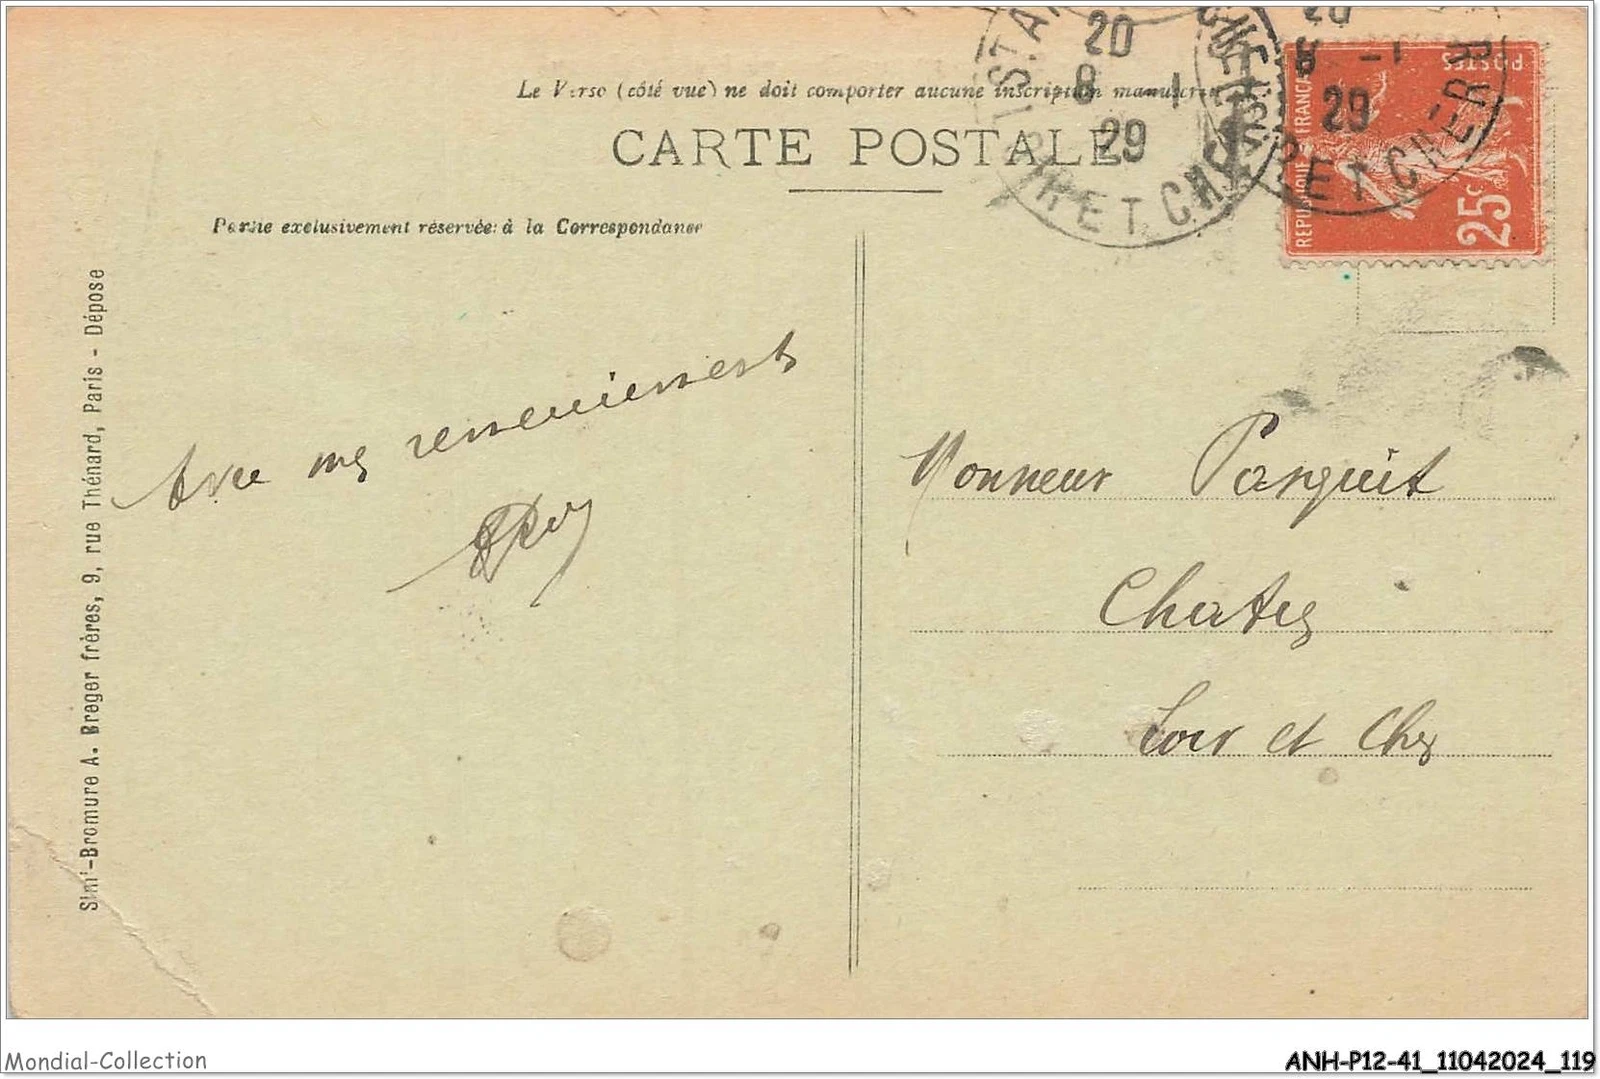 Le Verso (côté vue) ne doit comporter aucune inscription manuscrite
CARTE POSTALE
Partie exclusivement réservée à la Correspondance
20
8 -1
29
LOIR ET CHER
20
8 -1
29
LOIR ET CHER
REPUBLIQUE FRANCAISE
POSTES
25c
Simi-Bromure A. Breger frères, 9, rue Thénard, Paris - Déposé
Avec mes remerciements
Monsieur Parquit
Chatres
Loir et Cher
Mondial-Collection
ANH-P12-41_11042024_119